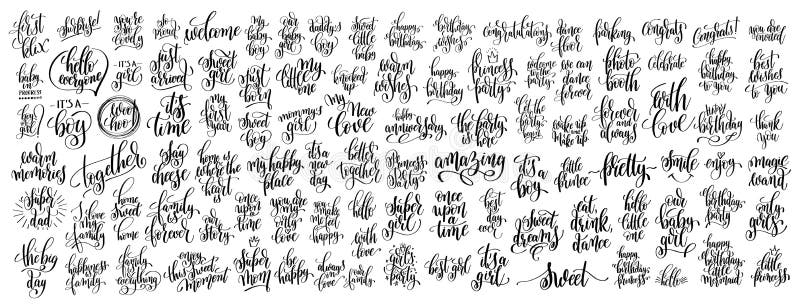 first
kiss
surprise!
you're
so
loved
so
proud
welcome
my
baby
boy
our
baby
girl
daddy's
boy
happy
birthday
happy
birthday
congratulations
dance
floor
parking
congrats
congrats!
you are
invited
baby
in
PROGRESS
hello
everyone
IT'S A
girl
just
arrived
sweet
girl
just
born
my
little
one
knocked
up
warm
wishes
happy
birthday
princess
party
welcome
to the
party
we can
dance
forever
photo
booth
celebrate
happy
birthday
to you
best
wishes
to you
boy
girl
IT'S A
boy
sweet
love
it's
time
my
first
year
sweet
boy
mommy's
girl
my
new
love
happy
anniversary
the
party
is here
let the
party
begin
wake up
and
make up
forever
and
always
with
love
happy
birthday
thank
you
warm
memories
together
say
cheese
home is
where the
heart
is
my happy
place
it's a
new
day
better
together
Princess
Party
amazing
it's a
boy
little
prince
pretty
smile
enjoy
magic
wand
super
dad
I love
my
family
home
sweet
home
family
is
forever
our
story
once
upon
time
you are
my
only
love
you
make
me feel
happy
hello
super
girl
once
upon
time
best
day
ever
sweet
dreams
eat,
drink,
dance
hello
little
one
our
baby
girl
birthday
party
only
girls
the big
day
happiness
family
family
everything
enjoy
this sweet
moment
super
mom
be
happy
always
in
love
our
family
with
love
girl's
party
best girl
it's a
girl
sweet
happy
birthday,
princess
hello
happy
birthday,
little
mermaid
little
princess